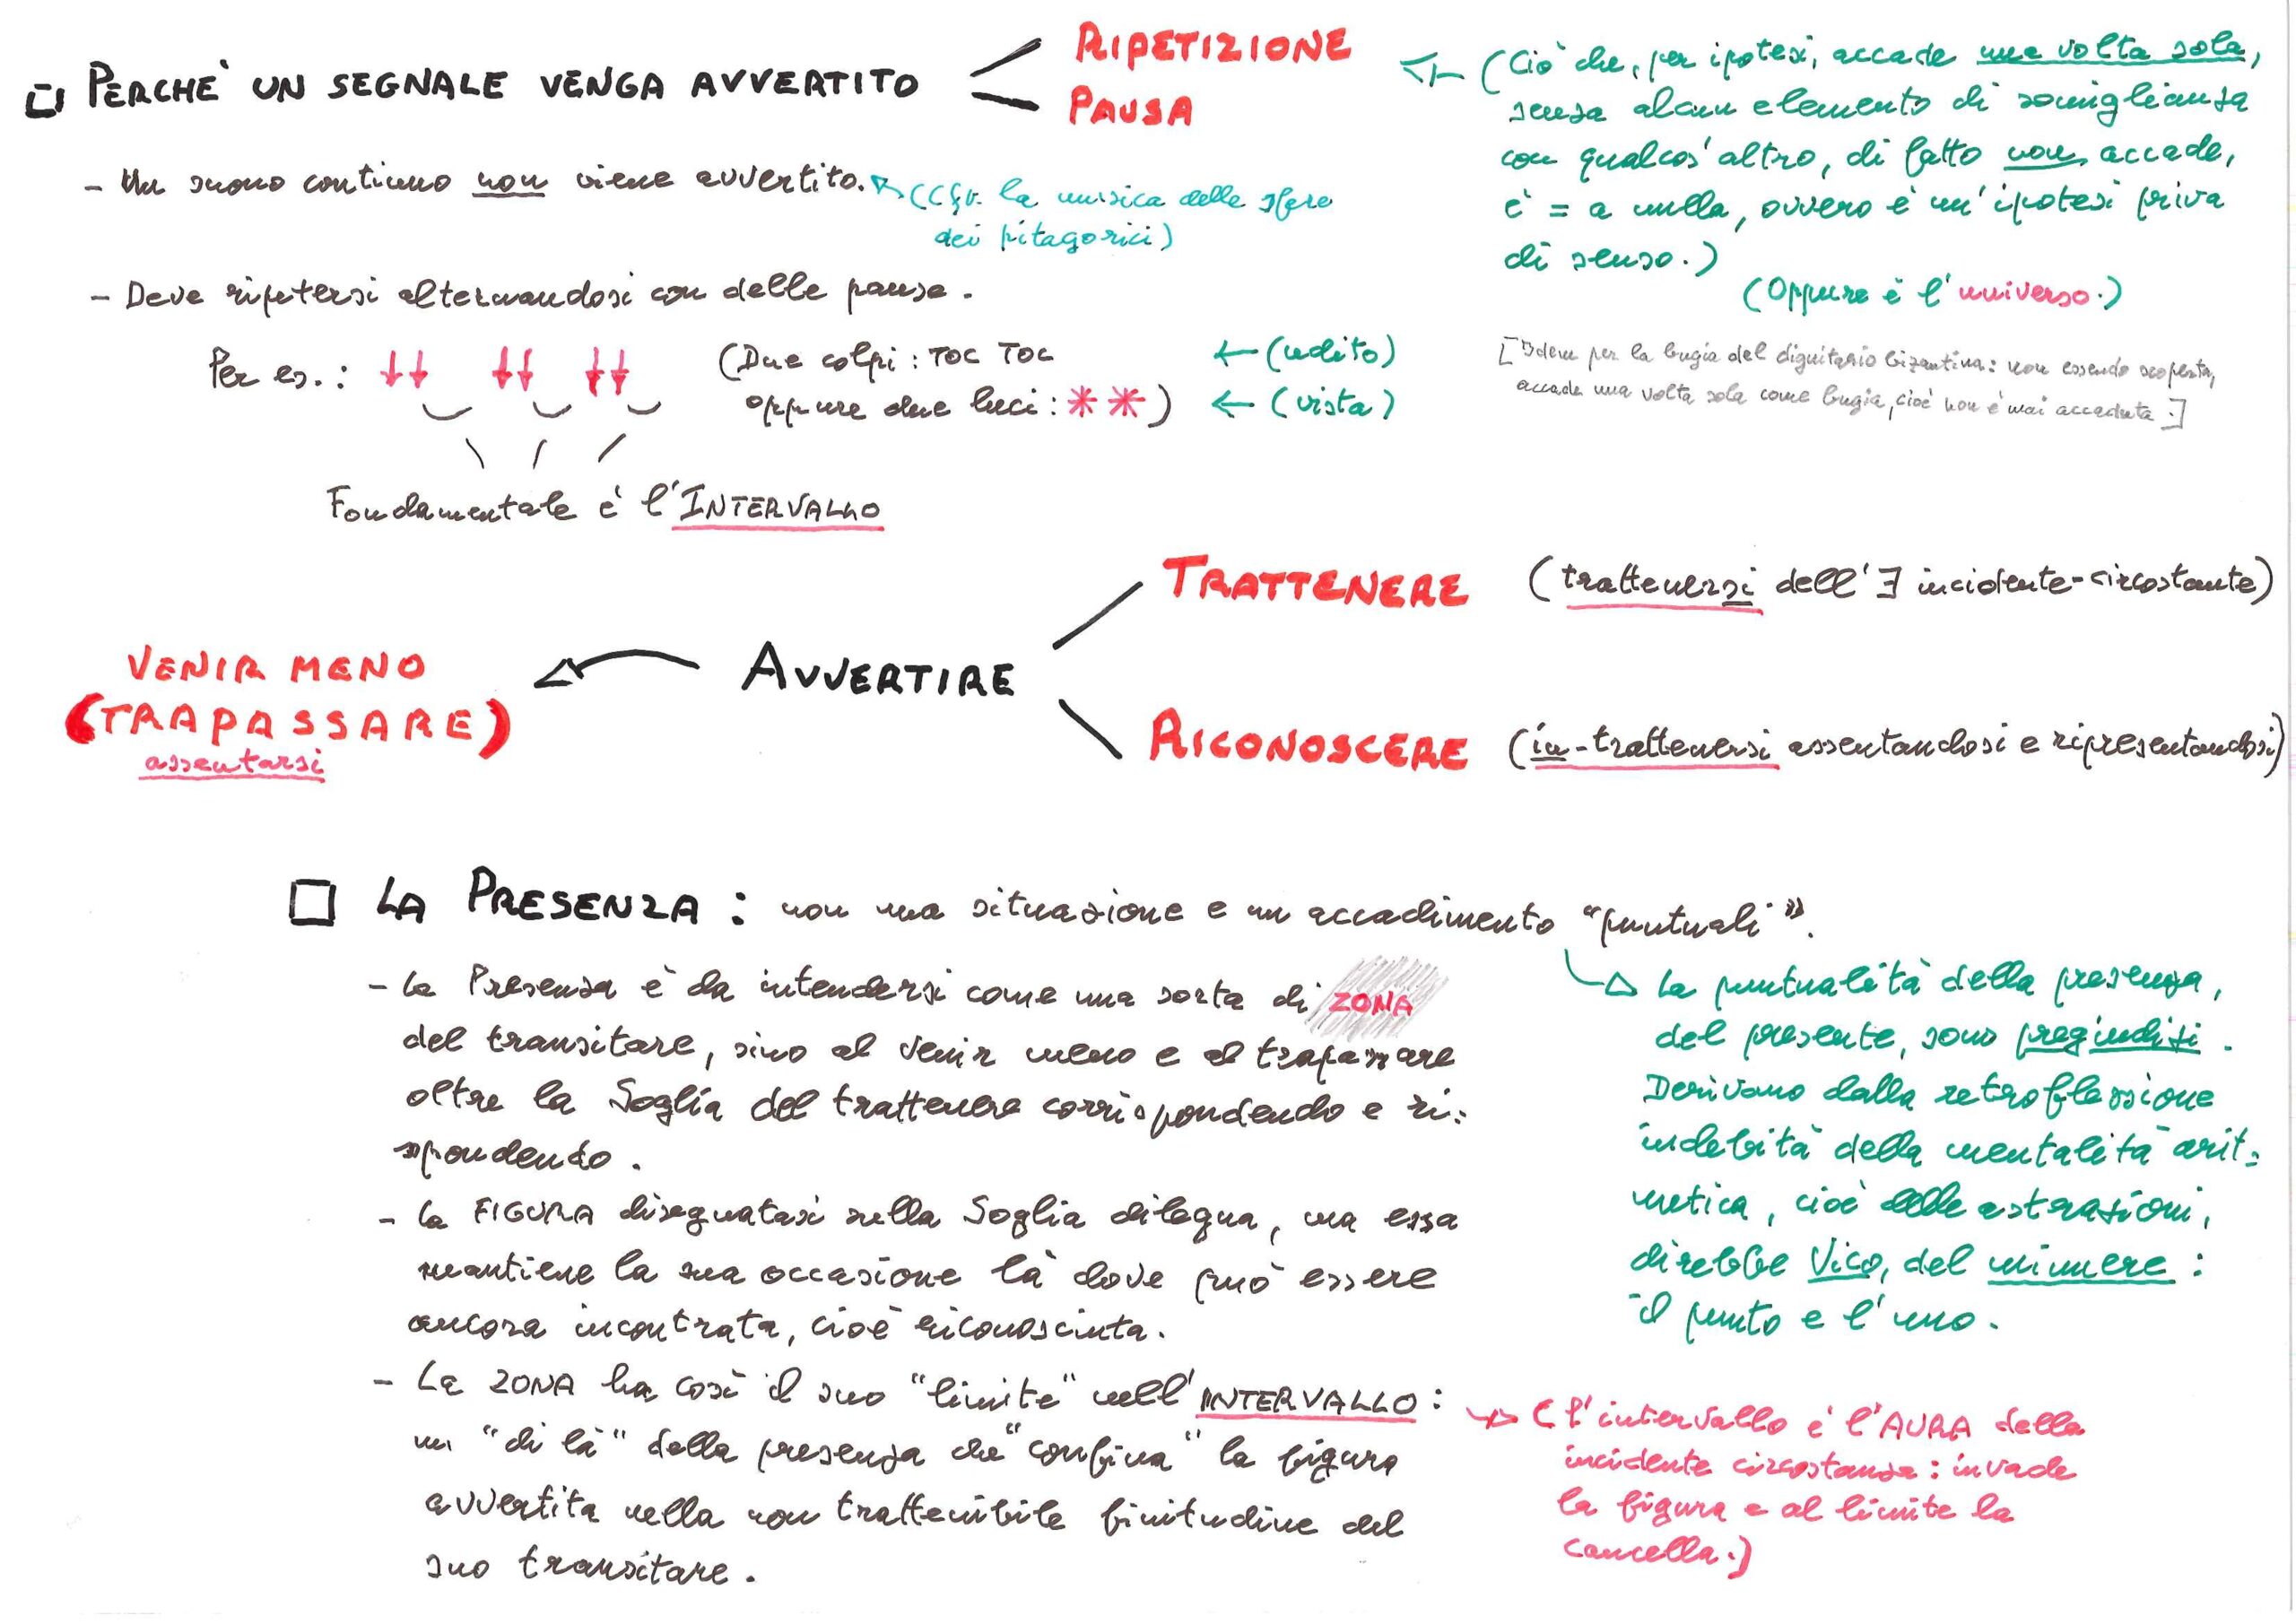 □ PERCHE' UN SEGNALE VENGA AVVERTITO
RIPETIZIONE
PAUSA
← (Ciò che, per ipotesi, accade una volta sola,
senza alcun elemento di somiglianza
con qualcos'altro, di fatto non accade,
è = a nulla, ovvero è un'ipotesi priva
di senso.)
(Oppure è l'universo.)
[Idem per la bugia del dignitario bizantino: non essendo scoperta,
accade una volta sola come bugia, cioè non è mai accaduta.]
- Un suono continuo non viene avvertito.
(Cfr. la musica delle sfere
dei pitagorici)
- Deve ripetersi alternandosi con delle pause.
Per es.: ↓↓ ↓↓ ↓↓ (Due colpi: TOC TOC ← (udito)
oppure due luci: **) ← (vista)
Fondamentale è l'INTERVALLO
TRATTENERE (trattenersi dell'∃ incidente-circostante)
VENIR MENO
(TRAPASSARE)
assentarsi
AVVERTIRE
RICONOSCERE (in-trattenersi assentandosi e ripresentandosi)
□ LA PRESENZA: non una situazione e un accadimento "puntuali".
- La Presenza è da intendersi come una sorta di ZONA
del transitare, sino al venir meno e al trapassare
oltre la Soglia del trattenere corrispondendo e ri=
spondendo.
- La FIGURA disegnatasi nella Soglia dilegua, ma essa
mantiene la sua occasione là dove può essere
ancora incontrata, cioè riconosciuta.
- La ZONA ha così il suo "limite" nell'INTERVALLO:
un "di là" della presenza che "confina" la figura
avvertita nella non trattenibile finitudine del
suo transitare.
La puntualità della presenza,
del presente, sono pregiudizi.
Derivano dalla retroflessione
indebita della mentalità arit=
metica, cioè delle astrazioni,
direbbe Vico, del minuere:
il punto e l'uno.
(L'intervallo è l'AURA della
incidente circostanza: invade
la figura e al limite la
cancella.)